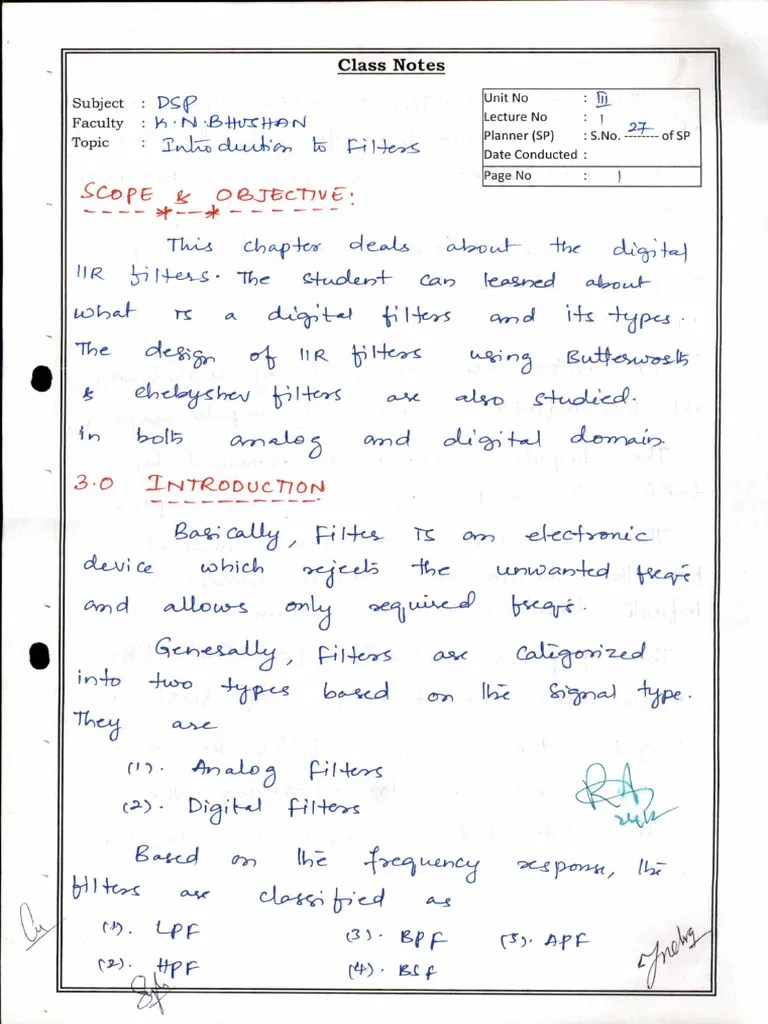 Class Notes
Subject : DSP
Faculty : K.N.BHUSHAN
Topic : Introduction to Filters
Unit No : III
Lecture No : 1
Planner (SP) : S.No. 27 of SP
Date Conducted :
Page No : 1
SCOPE & OBJECTIVE:
This chapter deals about the digital
IIR filters. The student can learned about
what is a digital filters and its types.
The design of IIR filters using Butterworth
& chebyshev filters are also studied.
in both analog and digital domain.
3.0 INTRODUCTION
Basically, Filter is an electronic
device which rejects the unwanted freq's
and allows only required freq's.
Generally, filters are categorized
into two types based on the signal type.
They are
(1). Analog filters
(2). Digital filters
Based on the frequency response, the
filters are classified as
(1). LPF (3). BPF (5). APF
(2). HPF (4). BSF